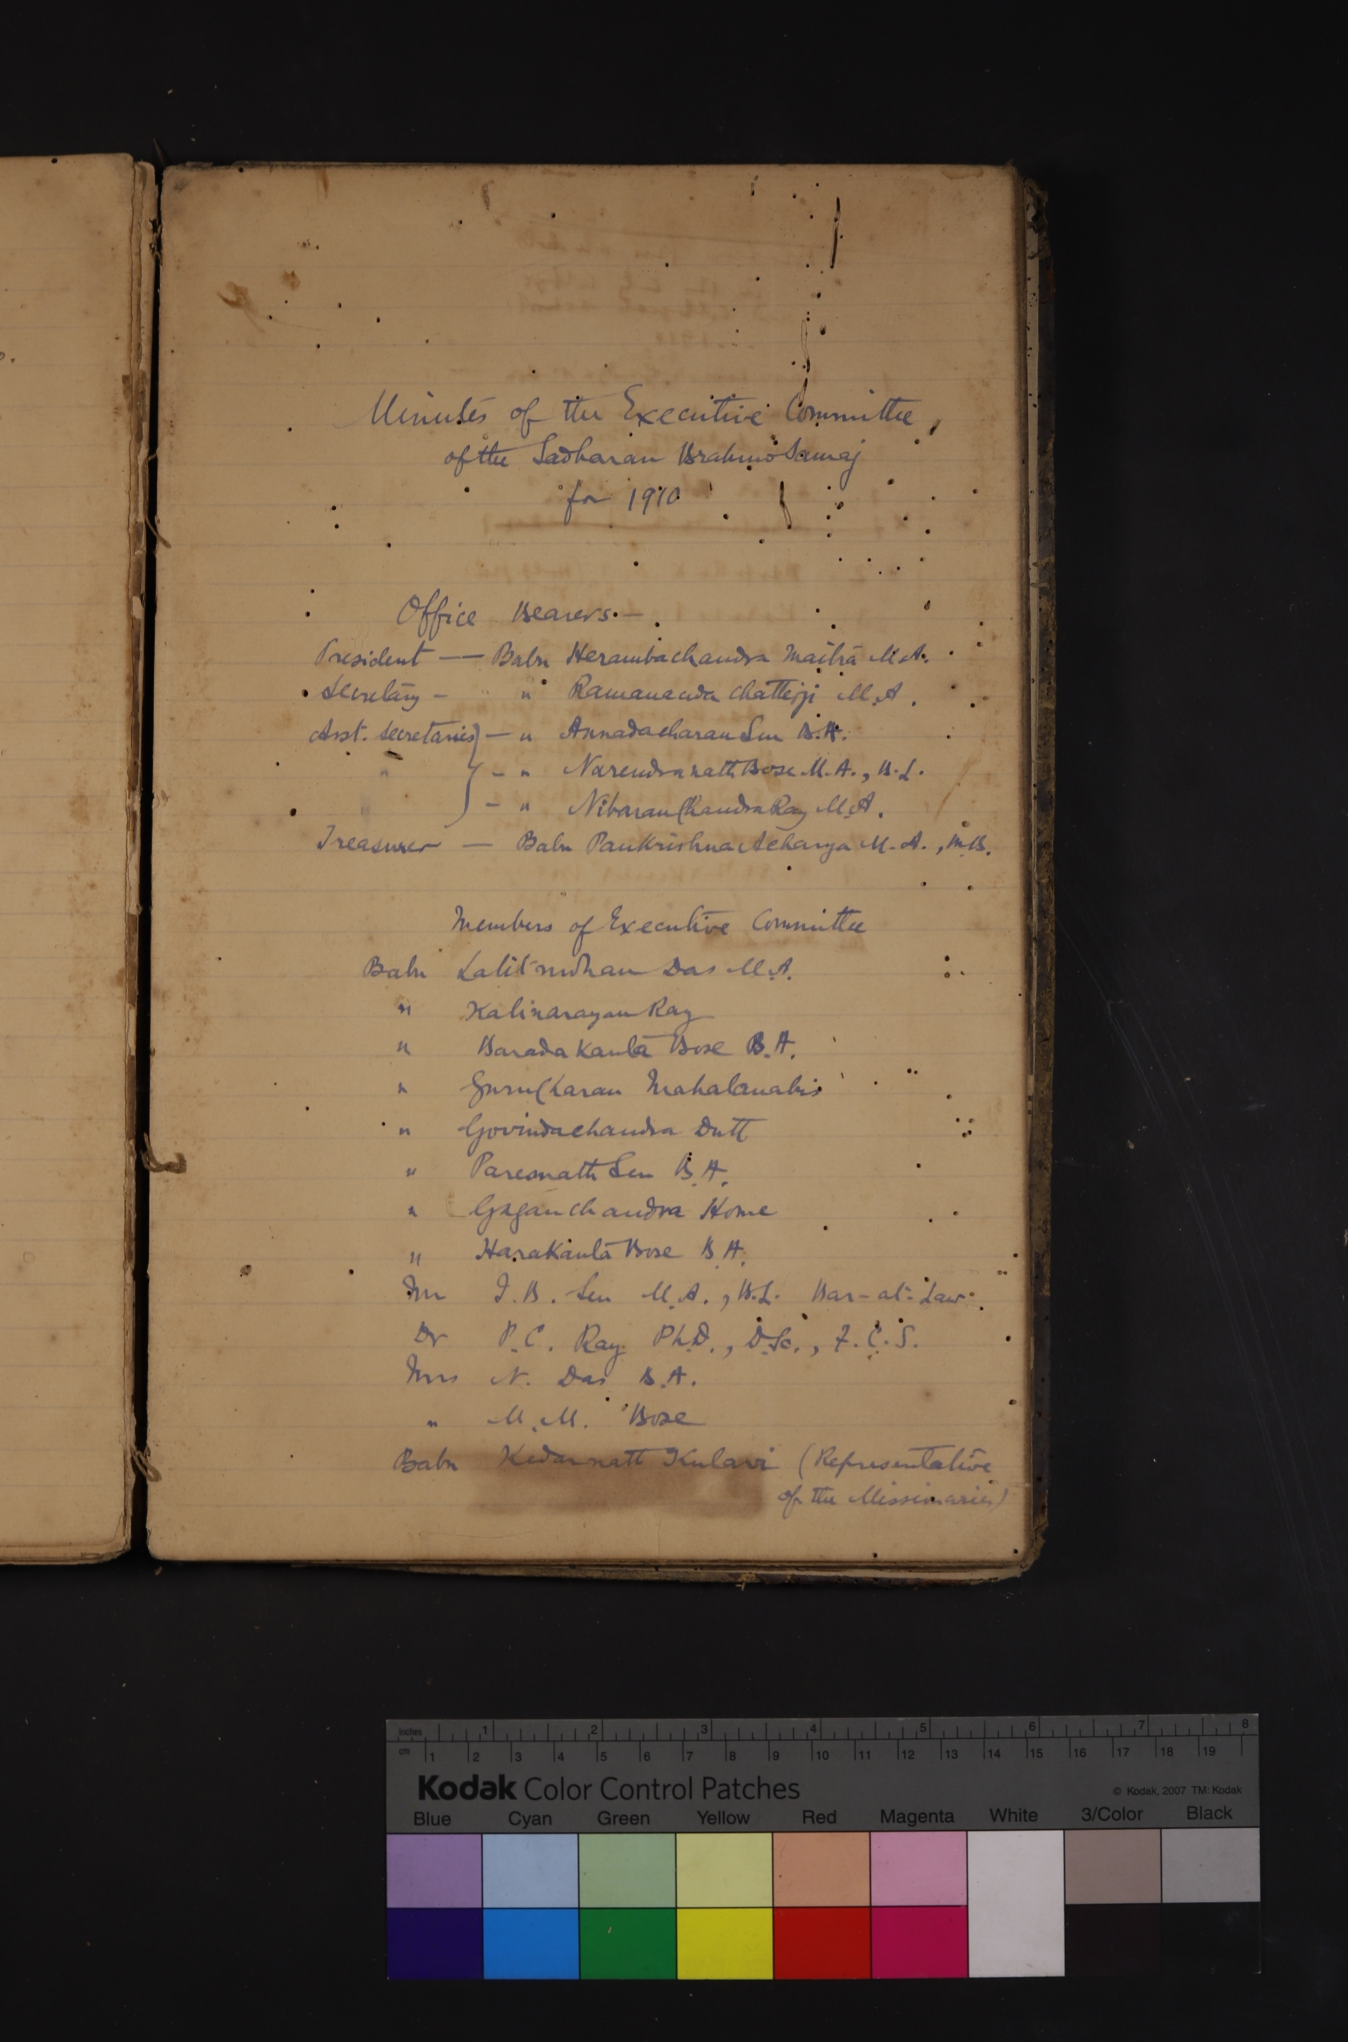 Minutes of the Executive Committee,
of the Sadharan Brahmo Samaj
for 1910
Office Bearers.—
President — Babu Herambachandra Maitra M.A.
Secretary - " Ramananda Chatterji M.A.
Asst. Secretaries } - " Annadacharan Sen B.A.
" } - " Narendranath Bose M.A., B.L.
" } - " Nibaran Chandra Ray M.A.
Treasurer — Babu Pankrishna Acharya M.A., M.B.
Members of Executive Committee
Babu Lalitmohan Das M.A.
" Kalinarayan Ray
" Barada Kanta Bose B.A.
" Gurucharan Mahalanabis
" Govindachandra Dutt
" Paresnath Sen B.A.
" Gaganchandra Home
" Harakanta Bose B.A.
Mr I.B. Sen M.A., B.L. Bar-at-Law.
Dr P.C. Ray Ph.D., D.Sc., F.C.S.
Mrs N. Das B.A.
" M.M. Bose
Babu Kedarnath Kulavi (Representative
of the Missionaries)
inches 1 2 3 4 5 6 7 8
cm 1 2 3 4 5 6 7 8 9 10 11 12 13 14 15 16 17 18 19
Kodak Color Control Patches © Kodak, 2007 TM: Kodak
Blue Cyan Green Yellow Red Magenta White 3/Color Black